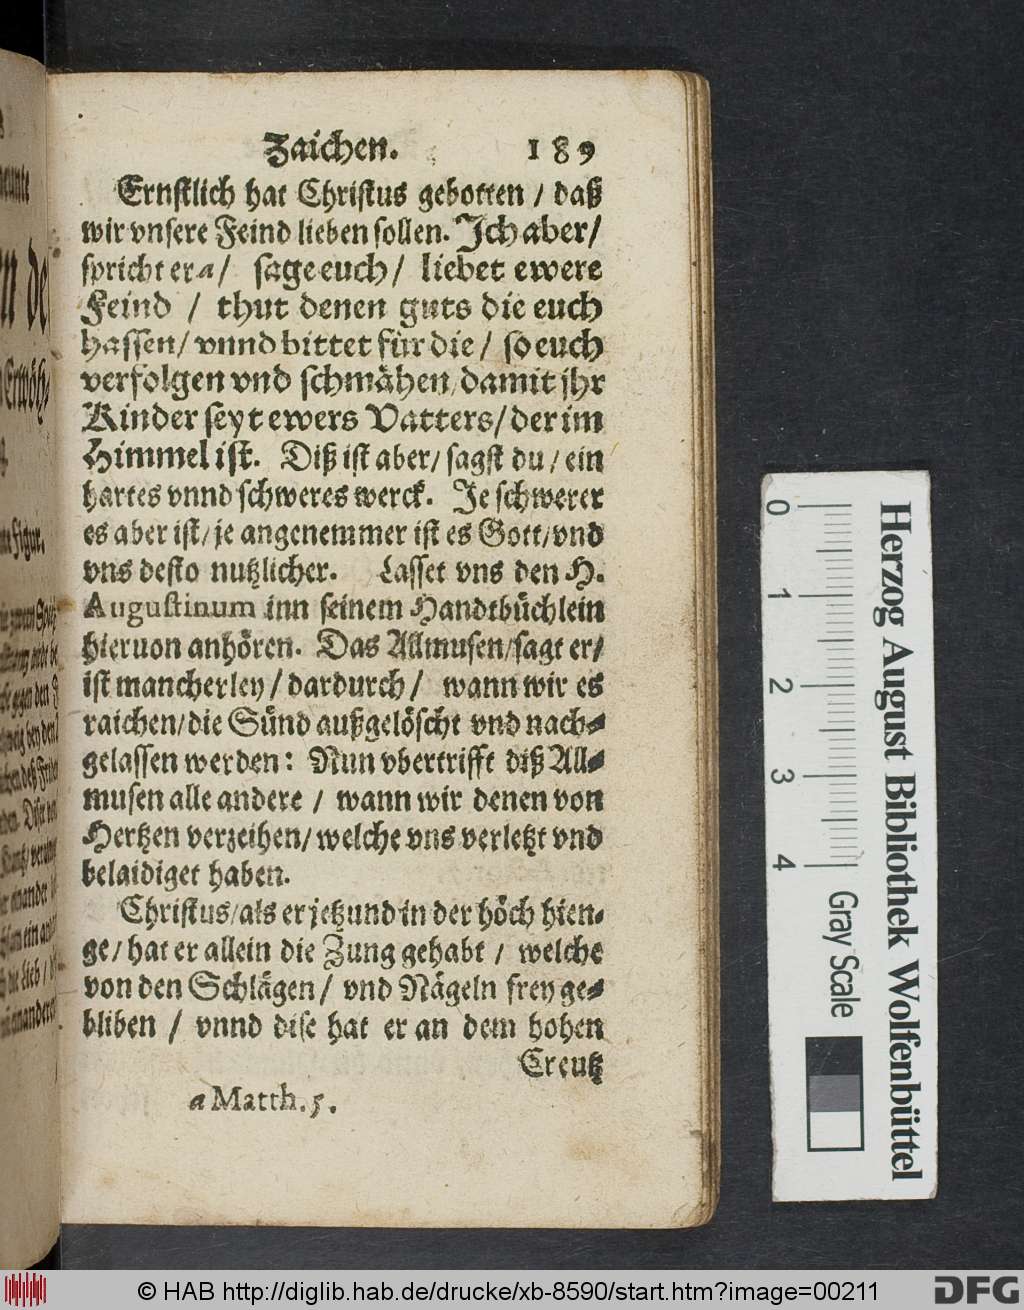 Zaichen. 189
Ernstlich hat Christus gebotten / daß
wir vnsere Feind lieben sollen. Ich aber /
spricht er a / sage euch / liebet ewere
Feind / thut denen guts die euch
hassen / vnnd bittet für die / so euch
verfolgen vnd schmähen / damit jhr
Kinder seyt ewers Vatters / der im
Himmel ist. Diß ist aber / sagst du / ein
hartes vnnd schweres werck. Je schwerer
es aber ist / je angenemmer ist es Gott / vnd
vns desto nutzlicher. Lasset vns den H.
Augustinum inn seinem Handtbüchlein
hieruon anhören. Das Allmusen / sagt er /
ist mancherley / dardurch / wann wir es
raichen / die Sünd außgelöscht vnd nach-
gelassen werden: Nun vbertrifft diß All-
musen alle andere / wann wir denen von
Hertzen verzeihen / welche vns verletzt vnd
belaidiget haben.
Christus / als er jetzund in der höch hien-
ge / hat er allein die Zung gehabt / welche
von den Schlägen / vnd Nägeln frey ge-
bliben / vnnd dise hat er an dem hohen
Creutz
a Matth. 5.
0 1 2 3 4 Gray Scale
Herzog August Bibliothek Wolfenbüttel
© HAB http://diglib.hab.de/drucke/xb-8590/start.htm?image=00211
DFG